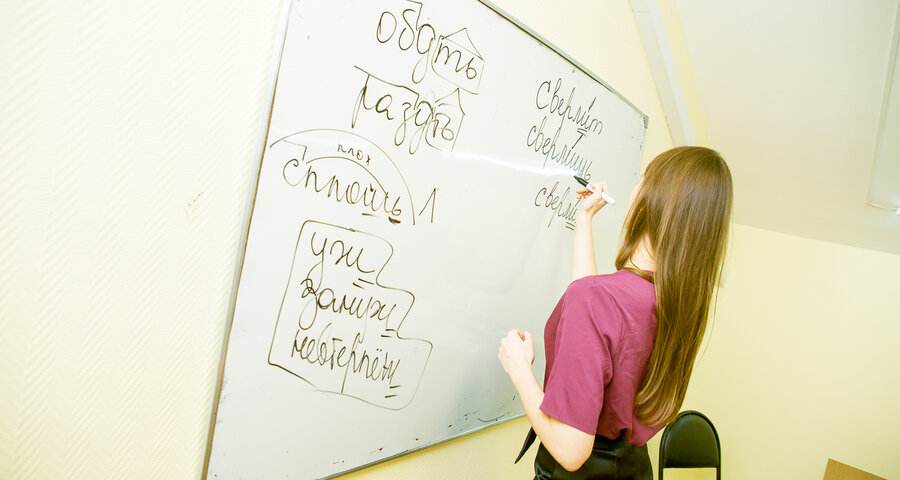 обдть
раздть
плох
сплошь 1
уж
замуж
невтерпёж
сверлит
сверлишь
сверли